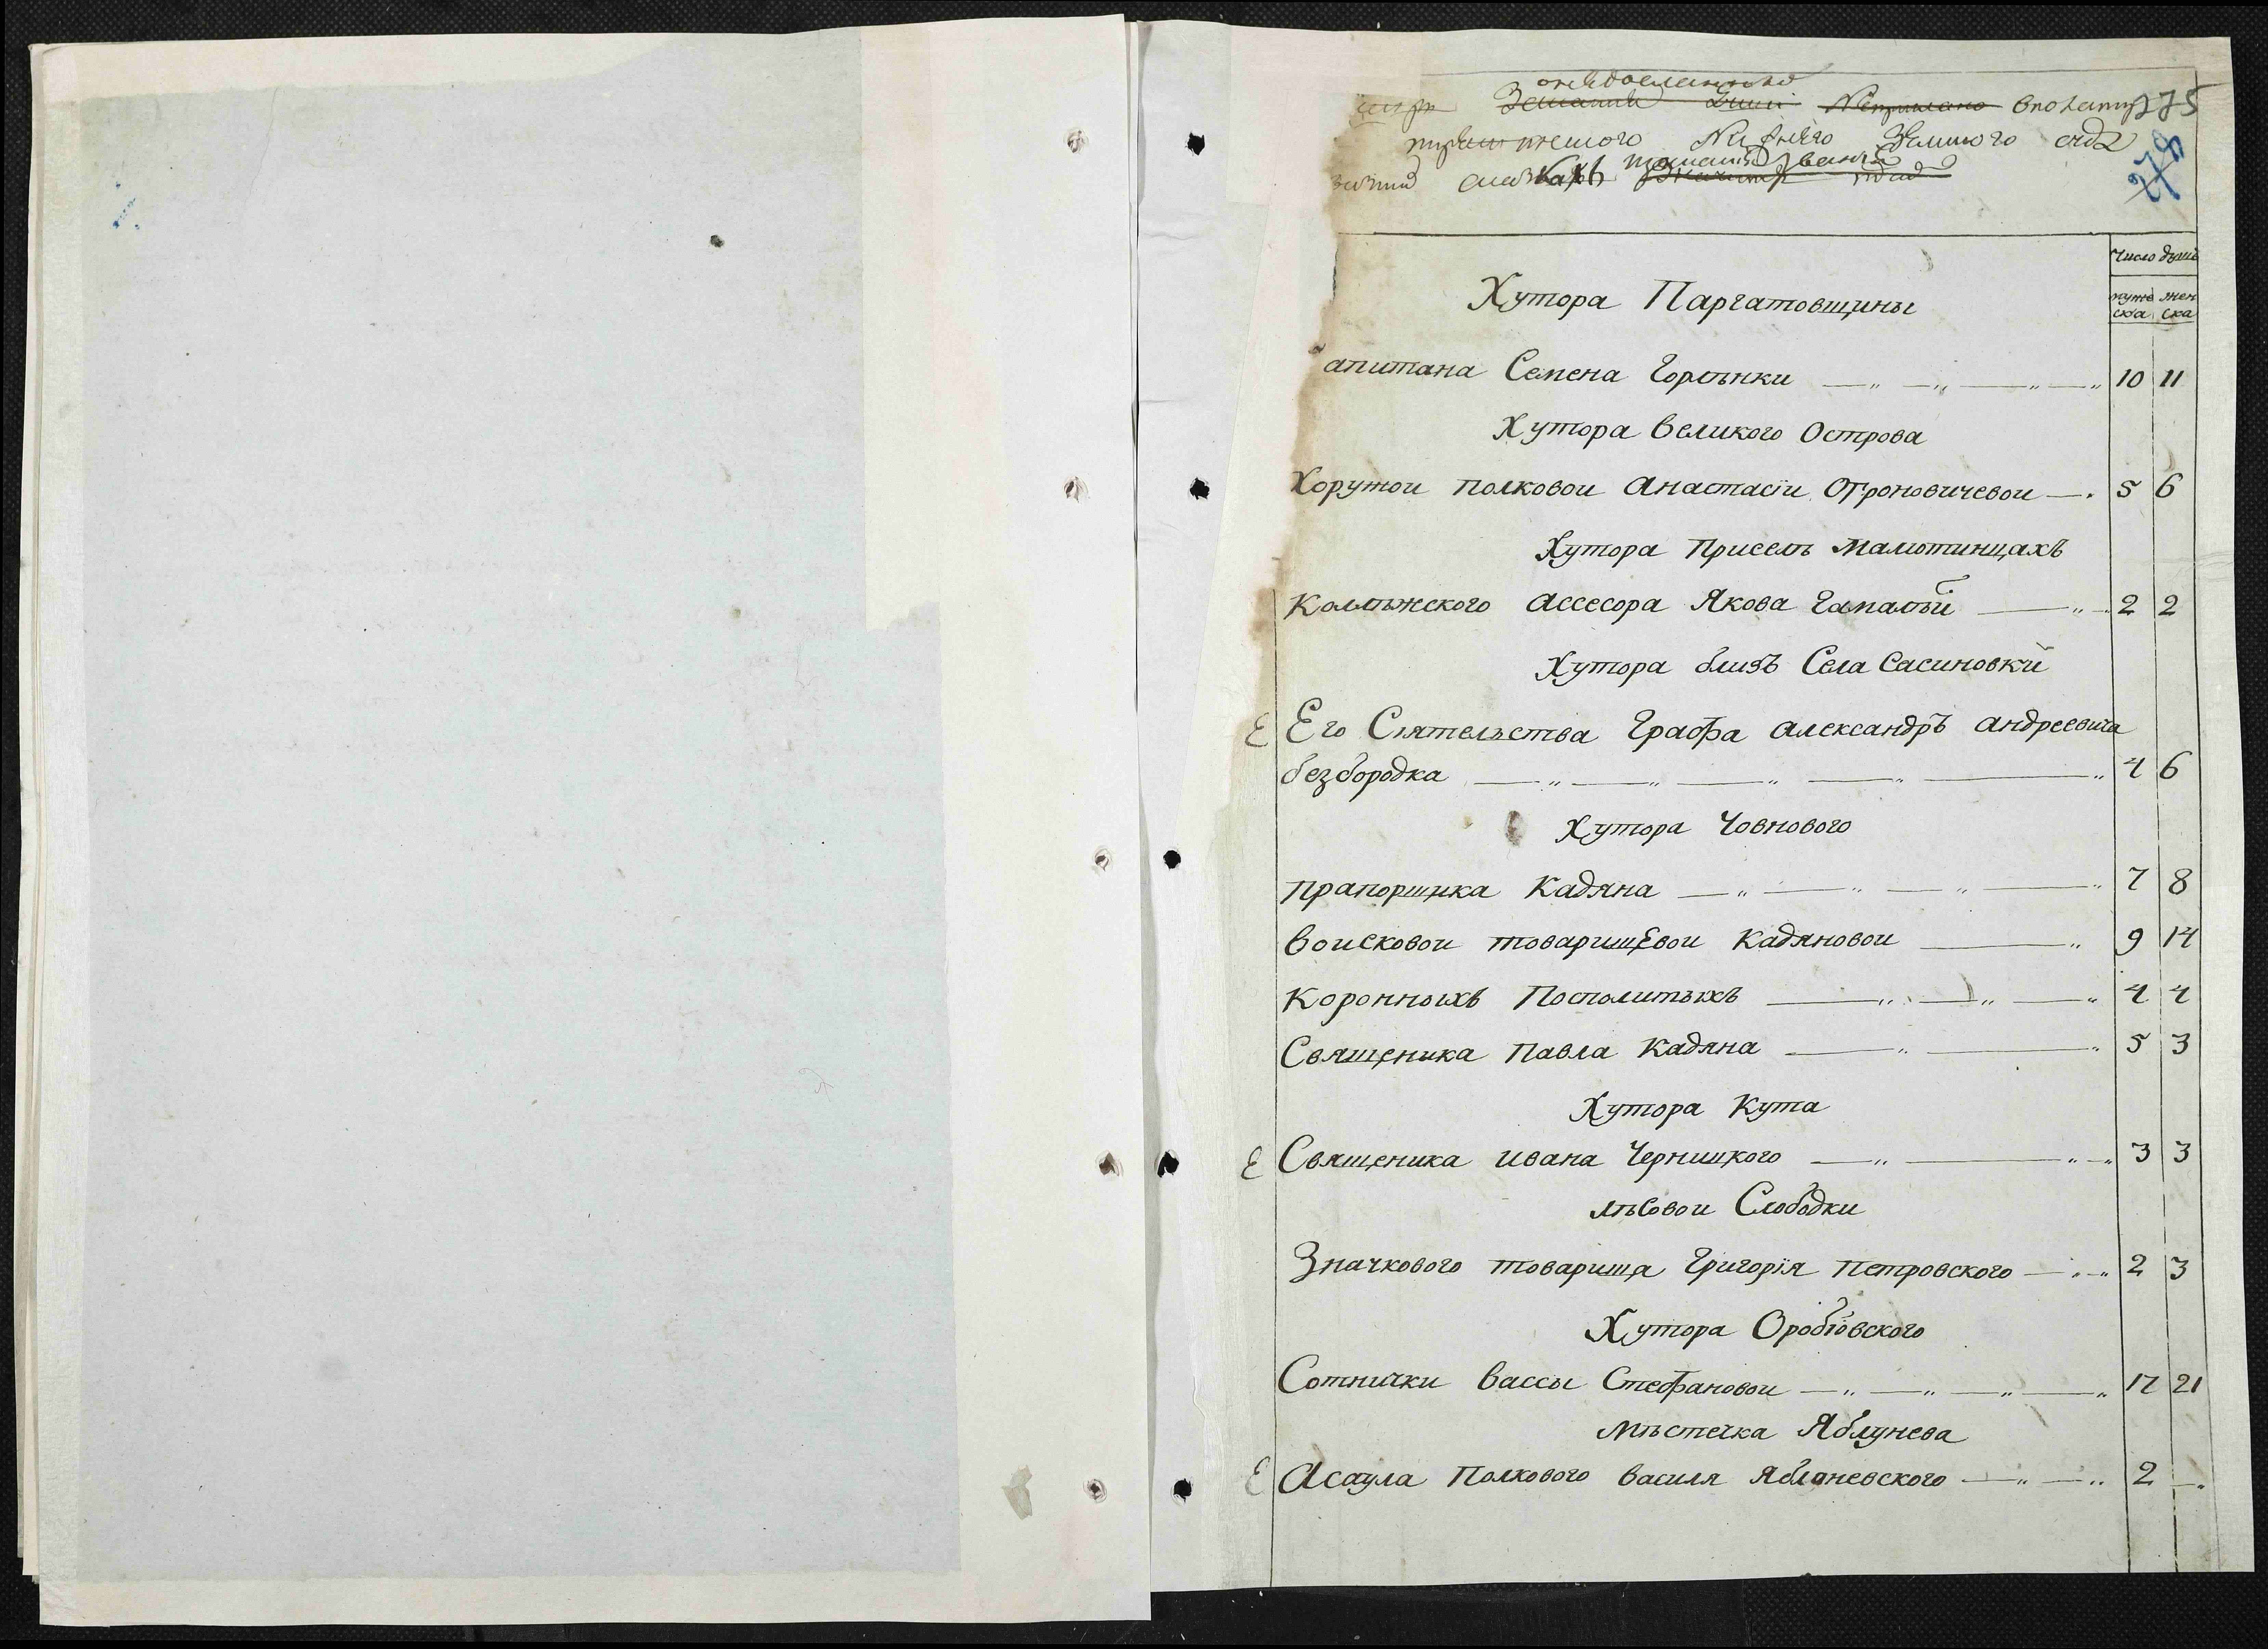 275
278
Число душъ
муже ска жен ска
Хутора Паргатовщины
апитана Семена Горленки 10 11
Хутора Великого Острова
Хоружои полковои Анастасіи Огроновичевои 5 6
Хутора Приселѣ Малютинцахъ
Колѣжского Ассесора Якова Гамалѣй 2 2
Хутора близъ Села Сасиновкй
Е Его Сіятельства Графа Александръ Андреевича
безбородка 4 6
Хутора Човнового
Прапорщика Кадяна 7 8
Воисковои товарищевои Кадяновои 9 14
Коронныхъ Посполитыхъ 4 4
Священика Павла Кадяна 5 3
Хутора Кута
Е Священика Ивана Черницкого 3 3
лѣсовои Слободки
Значкового товарища Григорія Петровского 2 3
Хутора Оробіовского
Сотнички Вассы Стефановои 17 21
Мѣстечка Яблунева
Е Асаула Полкового Василя Яблоневского 2